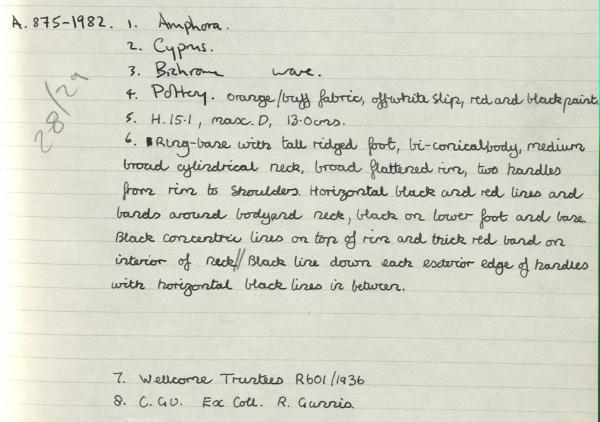 A. 875-1982. 1. Amphora.
2. Cyprus.
3. Bichrome ware.
28/29
4. Pottery. orange/buff fabric, offwhite slip, red and black paint.
5. H. 15.1, max. D, 13.0cms.
6. Ring-base with tall ridged foot, bi-conical body, medium
broad cylindrical neck, broad flattened rim, two handles
from rim to shoulders. Horizontal black and red lines and
bands around body and neck, black on lower foot and base.
Black concentric lines on top of rim and thick red band on
interior of neck// Black line down each exterior edge of handles
with horizontal black lines in between.
7. Wellcome Trustees R601/1936
8. Ex Coll. R. Gunnis.